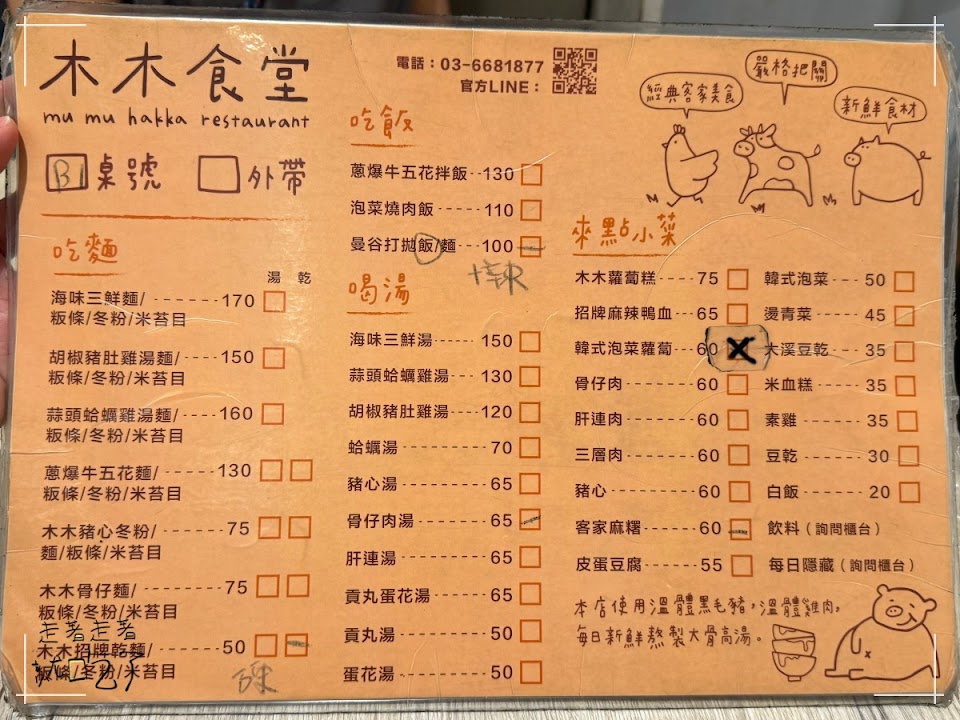 木木食堂
mu mu hakka restaurant
B1 桌號 外帶
電話：03-6681877
官方LINE：
經典客家美食
嚴格把關
新鮮食材
吃麵
湯 乾
海味三鮮麵/ ------ 170
粄條/冬粉/米苔目
胡椒豬肚雞湯麵/ ---- 150
粄條/冬粉/米苔目
蒜頭蛤蠣雞湯麵/ ---- 160
粄條/冬粉/米苔目
蔥爆牛五花麵/ ------ 130
粄條/冬粉/米苔目
木木豬心冬粉/ ------- 75
麵/粄條/米苔目
木木骨仔麵/ -------- 75
粄條/冬粉/米苔目
木木招牌乾麵/ ------ 50
粄條/冬粉/米苔目
走著走著
吃飯
蔥爆牛五花拌飯--130
泡菜燒肉飯----- 110
曼谷打拋飯/麵--- 100
喝湯
海味三鮮湯----- 150
蒜頭蛤蠣雞湯--- 130
胡椒豬肚雞湯---- 120
蛤蠣湯--------- 70
豬心湯--------- 65
骨仔肉湯------- 65
肝連湯--------- 65
貢丸蛋花湯----- 65
貢丸湯--------- 50
蛋花湯--------- 50
來點小菜
木木蘿蔔糕---- 75
招牌麻辣鴨血-- 65
韓式泡菜蘿蔔-- 60
骨仔肉-------- 60
肝連肉-------- 60
三層肉-------- 60
豬心---------- 60
客家麻糬------ 60
皮蛋豆腐------ 55
韓式泡菜---- 50
燙青菜------ 45
大溪豆乾---- 35
米血糕------ 35
素雞-------- 35
豆乾-------- 30
白飯-------- 20
飲料（詢問櫃台）
每日隱藏（詢問櫃台）
本店使用溫體黑毛豬，溫體雞肉，
每日新鮮熬製大骨高湯。